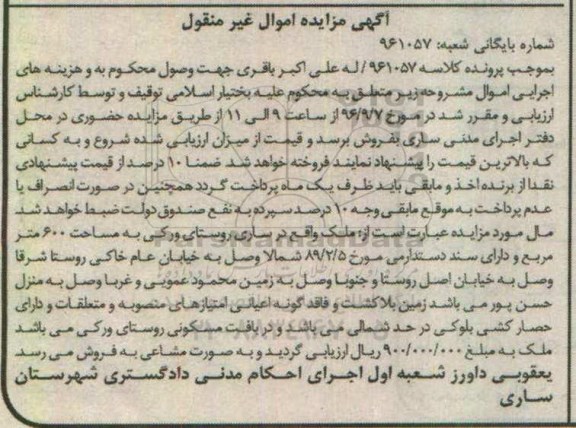 آگهی مزایده اموال غیر منقول
شماره بایگانی شعبه: ۹۶۱۰۵۷
بموجب پرونده کلاسه ۹۶۱۰۵۷ / له علی اکبر باقری جهت وصول محکوم به و هزینه های
اجرایی اموال مشروحه زیر متعلق به محکوم علیه بختیار اسلامی توقیف و توسط کارشناس
ارزیابی و مقرر شد در مورخ ۹۶/۹/۷ از ساعت ۹ الی ۱۱ از طریق مزایده حضوری در محل
دفتر اجرای مدنی ساری بفروش برسد و قیمت از میزان ارزیابی شده شروع و به کسانی
که بالاترین قیمت را پیشنهاد نمایند فروخته خواهد شد. ضمنا ۱۰ درصد از قیمت پیشنهادی
نقدا از برنده اخذ و مابقی باید ظرف یک ماه پرداخت گردد همچنین در صورت انصراف یا
عدم پرداخت به موقع مابقی وجه ۱۰ درصد سپرده به نفع صندوق دولت ضبط خواهد شد
مال مورد مزایده عبارت است از: ملک واقع در ساری، روستای ورکی به مساحت ۶۰۰ متر
مربع و دارای سند دستدارمی مورخ ۸۹/۲/۵ شمالا وصل به خیابان عام خاکی روستا شرقا
وصل به خیابان اصل روستا و جنوبا وصل به زمین محمود عمویی و غربا وصل به منزل
حسن پور می باشد زمین بلاکشت و فاقد گونه اعیانی امتیازهای منصوبه و متعلقات و دارای
حصار کشی بلوکی در حد شمالی می باشد و در بافت مسکونی روستای ورکی می باشد
ملک به مبلغ ۹۰۰/۰۰۰/۰۰۰ ریال ارزیابی گردید و به صورت مشاعی به فروش می رسد
یعقوبی داورز شعبه اول اجرای احکام مدنی دادگستری شهرستان
ساری